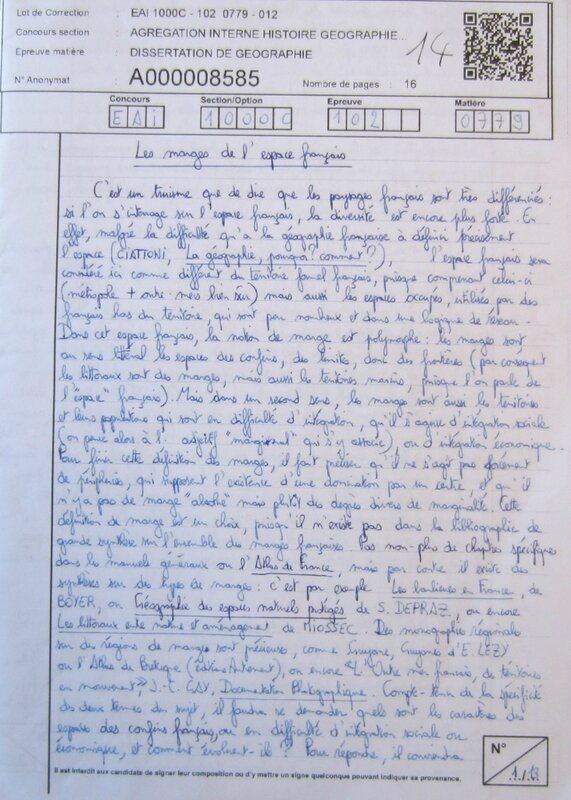 Lot de Correction : EAI 1000C - 102 0779 - 012
Concours section : AGREGATION INTERNE HISTOIRE GEOGRAPHIE...
Epreuve matière : DISSERTATION DE GEOGRAPHIE
14
N° Anonymat : A000008585 Nombre de pages : 16
Concours Section/Option Epreuve Matière
EAi 1000C 102 0779
Les marges de l'espace français
C'est un truisme que de dire que les paysages français sont très différenciés :
si l'on s'interroge sur l'espace français, la diversité est encore plus forte. En
effet, malgré la difficulté qu'a la géographie française à définir précisément
l'espace (CIATTONI, La géographie, pourquoi? comment?), l'espace français sera
considéré ici comme différent du territoire formel français, puisque comprenant celui-ci
(métropole + outre-mers bien sûr) mais aussi les espaces occupés, utilisés par des
français hors du territoire, qui sont par nombreux et dans une logique de réseau.
Dans cet espace français, la notion de marge est polymorphe : les marges sont
au sens littéral les espaces des confins, des limites, donc des frontières (par conséquent
les littoraux sont des marges, mais aussi les territoires marins, puisque l'on parle de
l'"espace" français). Mais dans un second sens, les marges sont aussi les territoires
et leurs populations qui sont en difficulté d'intégration, qu'il s'agisse d'intégration sociale
(on pense alors à l'adjectif "marginal" qui s'y associe), ou d'intégration économique.
Pour finir cette définition des marges, il faut préciser qu'il ne s'agit pas forcément
de périphéries, qui supposent l'existence d'une domination par un centre, et qu'il
n'y a pas de marge "absolue" mais plutôt des degrés divers de marginalité. Cette
définition de marge est un choix, puisqu'il n'existe pas dans la bibliographie de
grande synthèse sur l'ensemble des marges françaises. Pas non plus de chapitres spécifiques
dans les manuels généraux ou l'Atlas de France, mais par contre il existe des
synthèses sur des types de marges : c'est par exemple Les banlieues en France, de
BOYER, ou Géographie des espaces naturels protégés de S. DEPRAZ, ou encore
Les littoraux entre nature et aménagement de MIOSSEC. Des monographies régionales
sur des régions de marges sont précieuses, comme Guyane, Guyanes d'E. LEZY
ou l'Atlas de Bretagne (Editions Autrement), ou encore "L'Outre mer français, de territoires
en mouvement" J.-C. GAY, Documentation Photographique. Compte-tenu de la spécificité
des deux termes du sujet, il faudra se demander quels sont les caractères des
espaces des confins français, ou en difficulté d'intégration sociale ou
économique, et comment évoluent-ils ? Pour répondre, il conviendra
N°
1/13
Il est interdit aux candidats de signer leur composition ou d'y mettre un signe quelconque pouvant indiquer sa provenance.